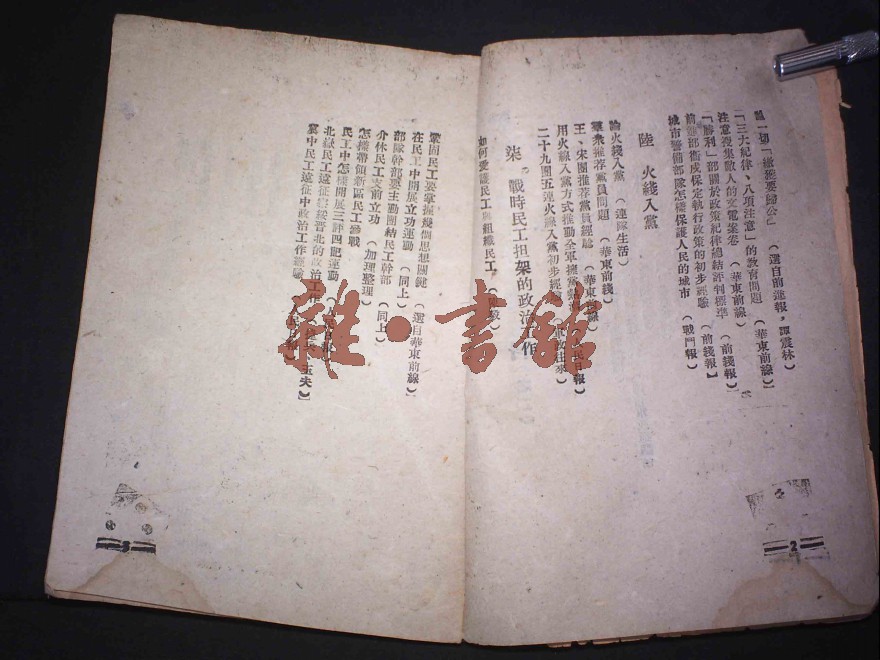 「一切「繳獲要歸公」（選自前進報，譚震林）
「三大紀律、八項注意」的教育問題（華東前線）
注意搜集敵人的文電案卷（華東前線）
「勝利」部關於政策紀律總結評判標準（前綫報）
前進部衛戍保定執行政策的初步經驗（前綫報）
城市警備部隊怎樣保護人民的城市（戰鬥報）
陸　火綫入黨
論火綫入黨（連隊生活）
羣衆推荐黨員問題（華東前綫）
王、宋團推荐黨員經驗（華東前線）
用火綫入黨方式推動全軍擁黨
二十九團五連火綫入黨初步經
柒　戰時民工担架的政治工作
如何愛護民工與組織民工
鞏固民工要掌握幾個思想關鍵（選自華東前線）
在民工中開展立功運動（同上）
部隊幹部要主動團結民工幹部（同上）
介休民工支前立功（加理整理）
怎樣帶領新區民工參戰
民工中怎樣開展三評四記運動
北嶽民工遠征察綏晉北的政治工作
冀中民工遠征中政治工作經驗
雜·書館
2
3